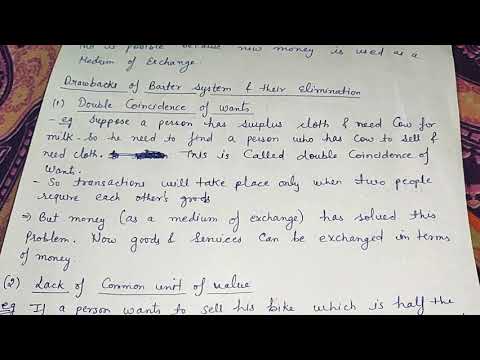 is possible because now money is used as a
Medium of Exchange.
Drawbacks of Barter System & their Elimination
(1) Double Coincidence of wants
- eg Suppose a person has surplus cloth & need Cow for
milk. So he need to find a person who has cow to sell &
need cloth. This is Called double Coincidence of
wants.
- So transactions will take place only when two people
require each other's goods
⇒ But money (as a medium of exchange) has solved this
Problem. Now goods & Services Can be exchanged in terms
of money.
(2) Lack of Common unit of value
eg If a person wants to sell his bike which is half the